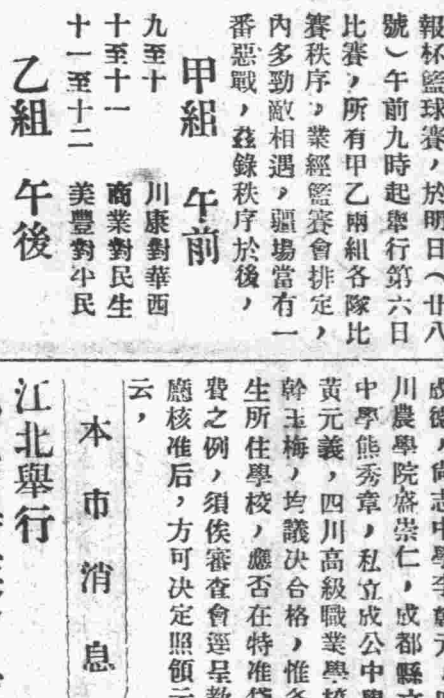 報杯籃球賽，於明日（廿八
號）午前九時起舉行第六日
比賽，所有甲乙兩組各隊比
賽秩序，業經籃賽會排定，
內多勁敵相遇，疆場當有一
番惡戰，茲錄秩序於後，
甲組　午前
九至十　川康對華西
十至十一　商業對民生
十一至十二　美豐對半民
乙組　午後
川農學院盛崇仁，成都縣立
中學熊秀章，私立成公中學
黃元義，四川高級職業學校
幹玉梅，均議決合格，惟各
生所住學校，應否在特准貸
費之例，須俟審查會逕呈教
廳核准后，方可決定照領云
云，
本市消息
江北舉行